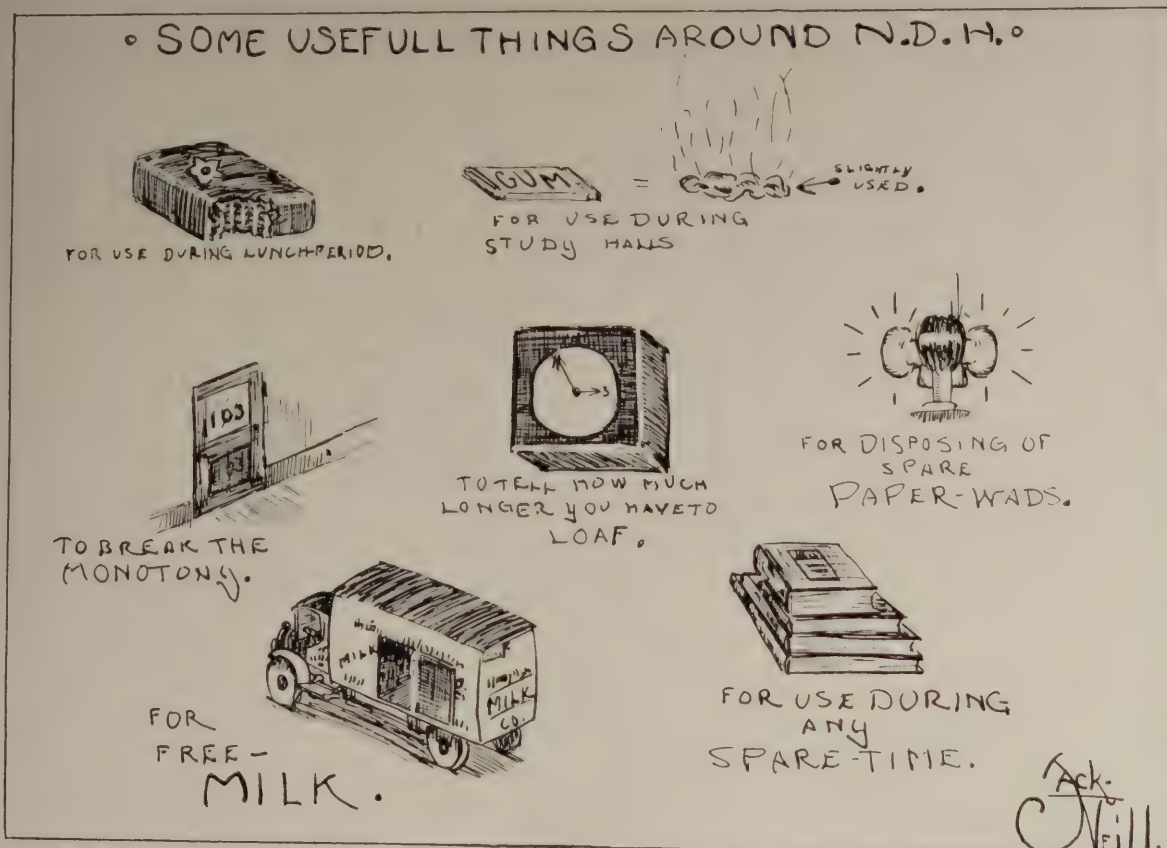 ° SOME USEFULL THINGS AROUND N.D.H. °
FOR USE DURING LUNCH-PERIOD.
GUM =
SLIGHTLY
USED.
FOR USE DURING
STUDY HALLS
103
TO BREAK THE
MONOTONY.
3
TO TELL HOW MUCH
LONGER YOU HAVE TO
LOAF.
FOR DISPOSING OF
SPARE
PAPER-WADS.
MILK
MILK
CO.
FOR
FREE-
MILK.
FOR USE DURING
ANY
SPARE-TIME.
Jack.
O'Neill.